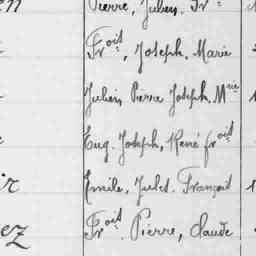 Pierre, Julien. Fr
Fr^oit, Joseph, Marie
Julien Pierre Joseph, M^rie
Eug. Joseph, René fr^oit
Emile, Jules. François
Fr^oit. Pierre, Claude
ez